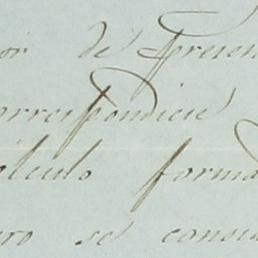 or de Presen
orrespondien
álculo forma
ro se consi